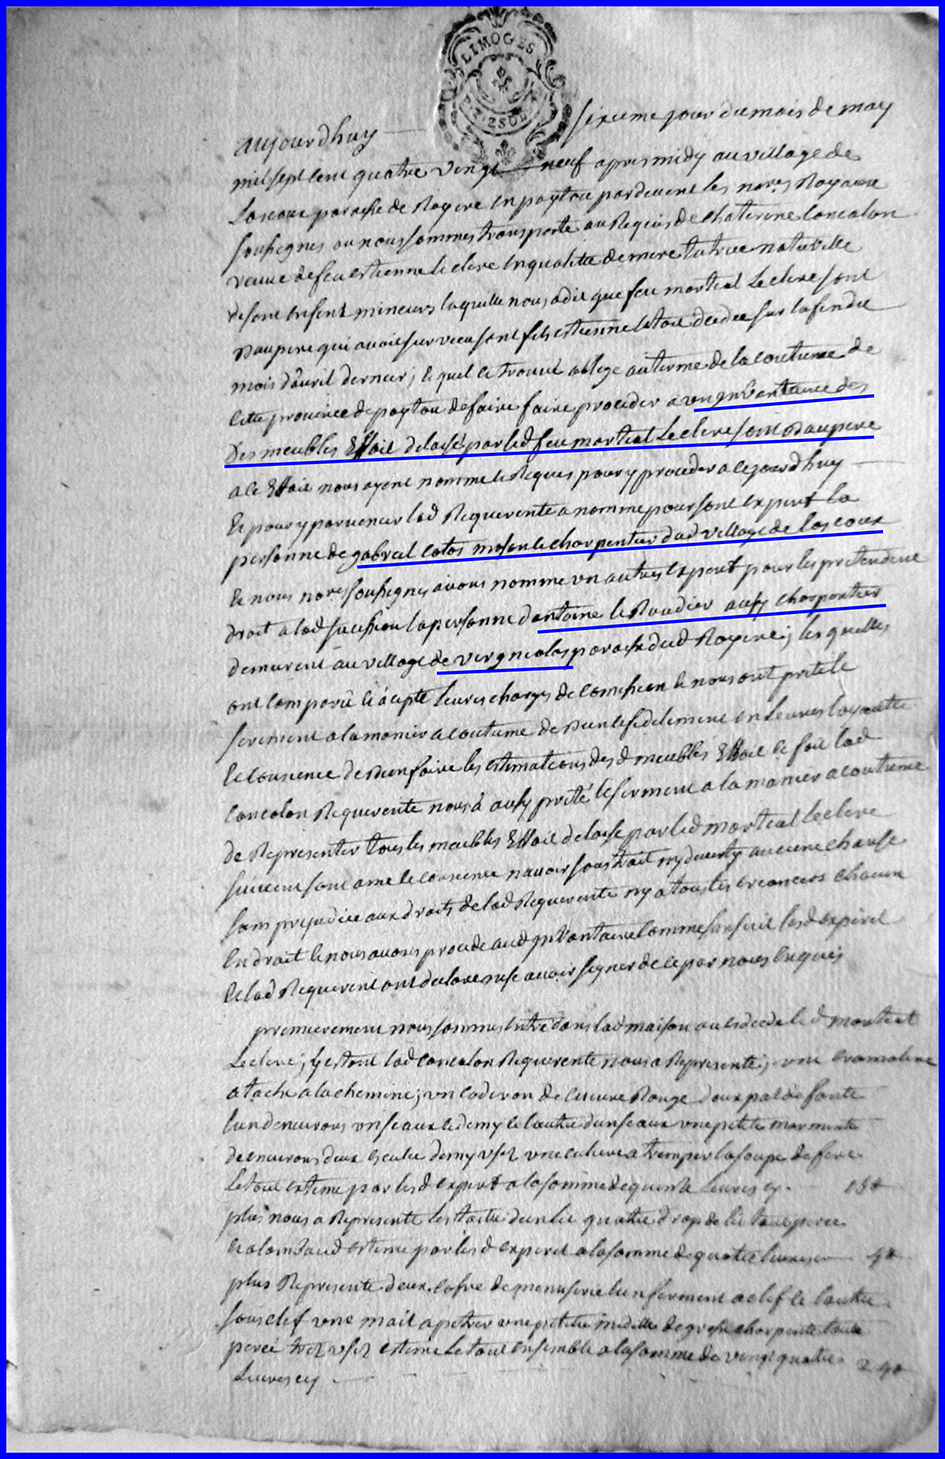 LIMOGES
aujourdhuy sixieme jour du mois de may
mil sept cent quatre vingt neuf apres midy au village de
Lascoux paroisse de Royere en poytou par devent les nores Royaux
soussignes ou nous sommes transporte au Requis de Chaterine Concalon
veuve de feu estienne leclere en qualitte de mere tutrise naturelle
de sont enfent mineurs laquelle nous a dit que feu martial Leclere sont
Baupere qui avoit survecu sont fils estienne le tout decede sur la fin du
mois d'avril dernier; lequel le trouve oblige au terme de la coutume de
cette province de poytou de faire faire proceder a un jnventaire des
Des meubles Effait delaise par led feu martial Leclere sont Baupere
a ce Effait nous ayent nomme le Requis pour y proceder a ce jourdhuy
Et pour y parvenir lad Requerente a nomme pour sont expert la
personne de gabriel cotos charpentier dud village de lascoux
Et nous nores soussignes avons nomme un autre expert pour les pretendent
droit a lad sucession la personne dantoine leRoudier aussy charpentier
demeurent au village de vergnolas paroisse dud Royere; les quelles
ont comparu et acepte leurs charges de comission et nous ont prete le
serement a la manier acoutume de fidelement en leurs loyautte
et concience de bien faire les estimations des d meubles Effait et fait lad
concalon Requerente nous a aussy prete le serment a la manier acoutume
de Representer tous les meubles Effait delaise par led martial leclere
suivent sont ame et concience navoir soustrait ny aucune chause
sans prejudice aux droits de lad Requerente ny a tous les creanciers chacun
en droit et nous avons procede aud jnventaire comme sensuit lesd expert
et lad Requerent ont declare ne savoir signer de ce par nous enquis
premierement nous sommes entre dans lad maison ou est decede led martial
Leclere; et estent lad concalon Requerente nous a Represente; une cramaliere
atache a la chemine; un coderon de cuivre Rouge deux pat de fonte
lun denvirons un seaux et demy et lautre dun seaux une petite marmite
de environs deux ecuele demy usez une culiere a tremper la soupe de fere
Le tout estime par lesd expert a la somme de quinze Livres cy. 15#
plus nous a Represente les quatre drap de lit
estime par lesd expert a la somme de quatre livres 4#
plus Represente deux cofre de menuserie lun ferment a clef et lautre
sans clef une mait a petrir une petite de grose charpente
usez estime le tout ensemble a la somme de vingt quatre 24#
Livres cy